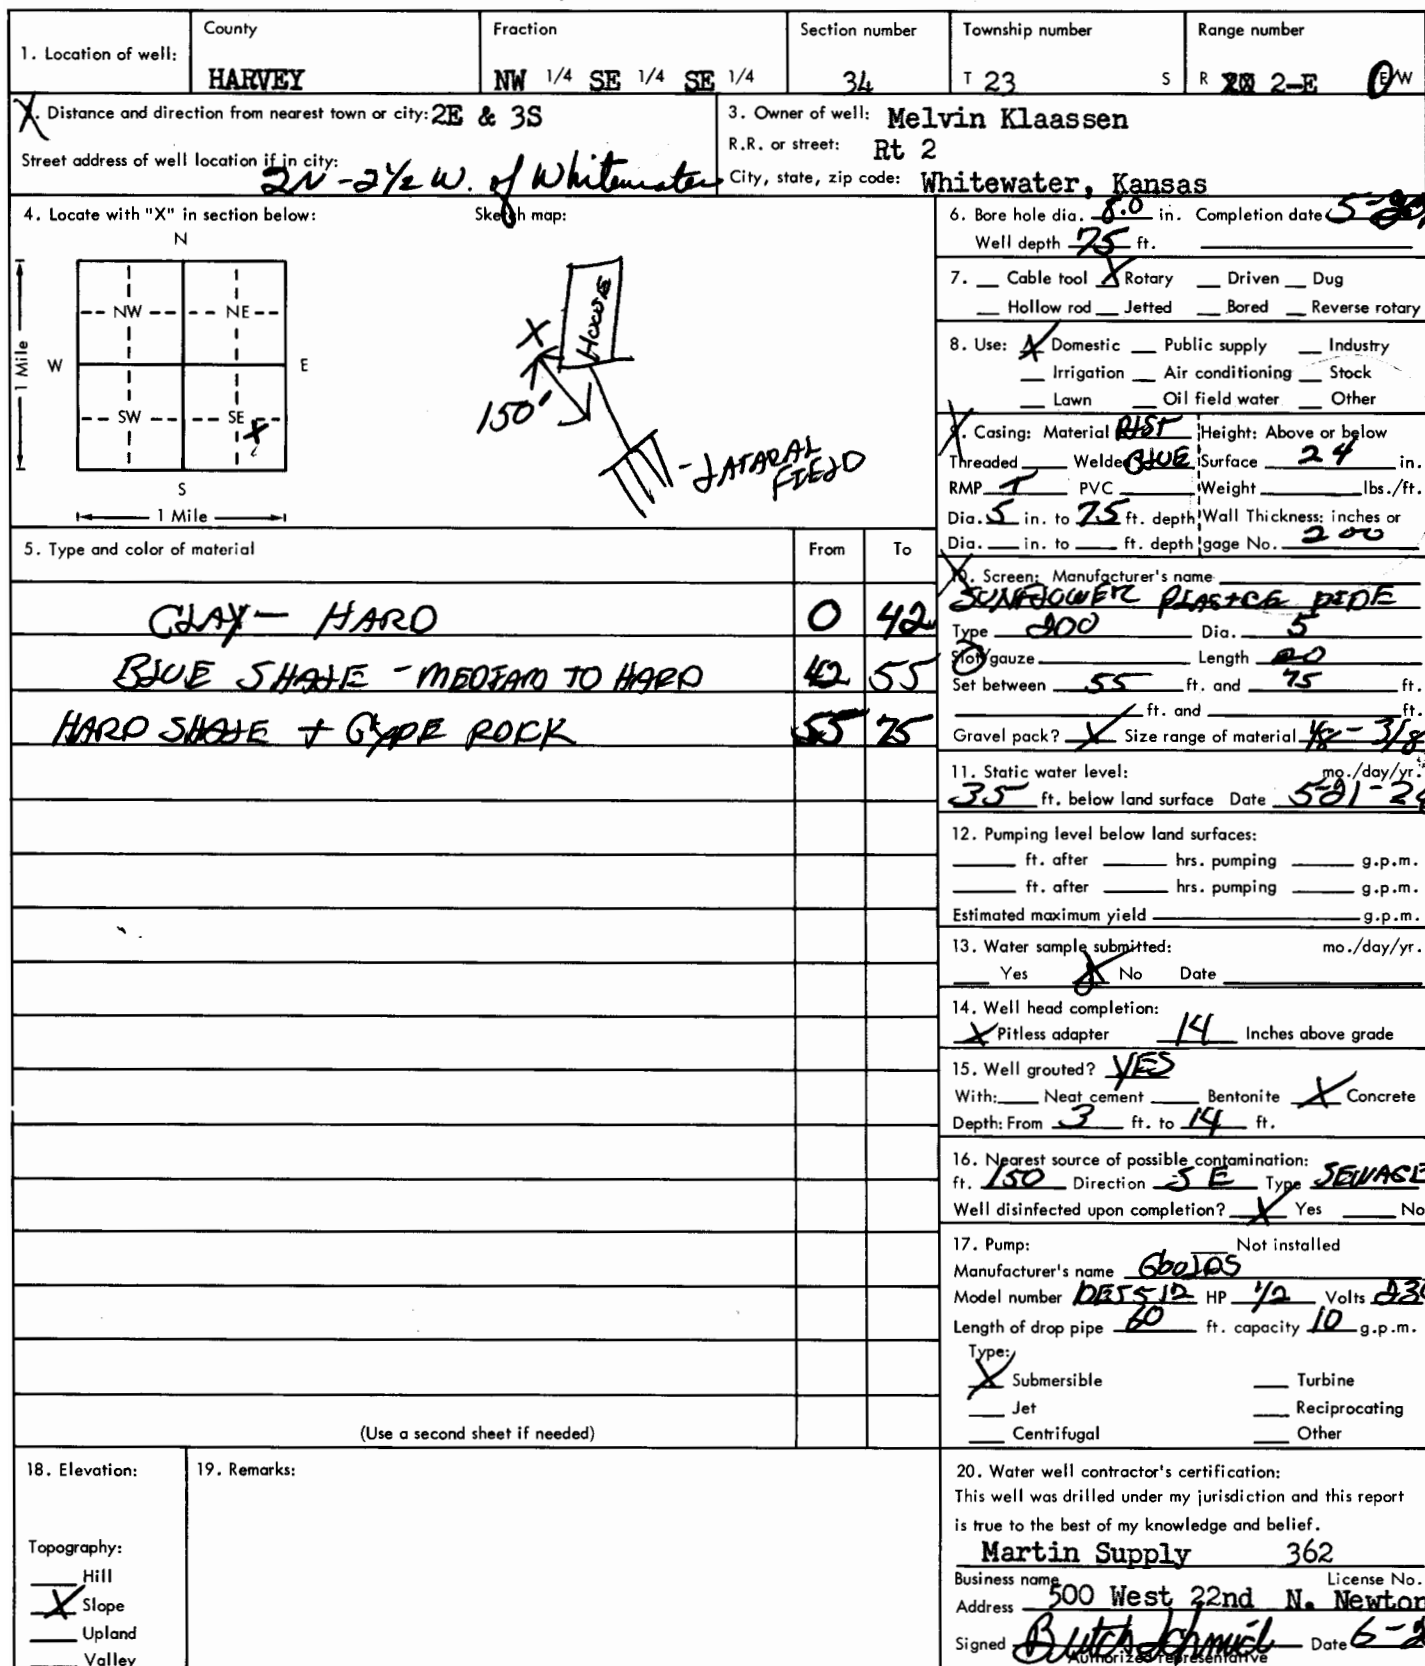 County Fraction Section number Township number Range number
1. Location of well: HARVEY NW 1/4 SE 1/4 SE 1/4 34 T 23 S R 2-E E/W
X. Distance and direction from nearest town or city: 2E & 3S
Street address of well location if in city: 2N - 2 1/2 W. of Whitewater
3. Owner of well: Melvin Klaassen
R.R. or street: Rt 2
City, state, zip code: Whitewater, Kansas
4. Locate with "X" in section below: Sketch map:
N
NW NE
W E
1 Mile
SW SE
X
S
1 Mile
HOUSE
X
150'
LATARAL
FIELD
5. Type and color of material From To
CLAY - HARD 0 42
BLUE SHALE - MEDIAM TO HARD 42 55
HARD SHALE + GYPE ROCK 55 75
(Use a second sheet if needed)
6. Bore hole dia. 8.0 in. Completion date 5-
Well depth 75 ft.
7. Cable tool X Rotary Driven Dug
Hollow rod Jetted Bored Reverse rotary
8. Use: X Domestic Public supply Industry
Irrigation Air conditioning Stock
Lawn Oil field water Other
9. Casing: Material Height: Above or below
Threaded Welded GLUE Surface 24 in.
RMP PVC Weight lbs./ft.
Dia. 5 in. to 75 ft. depth Wall Thickness: inches or
Dia. in. to ft. depth gage No. 200
10. Screen: Manufacturer's name
SUNFLOWER PLASTCE PIPE
Type 200 Dia. 5
Slot/gauze Length 20
Set between 55 ft. and 75 ft.
ft. and ft.
Gravel pack? X Size range of material 1/8 - 3/8
11. Static water level: mo./day/yr.
35 ft. below land surface Date 5-21-
12. Pumping level below land surfaces:
ft. after hrs. pumping g.p.m.
ft. after hrs. pumping g.p.m.
Estimated maximum yield g.p.m.
13. Water sample submitted: mo./day/yr.
Yes X No Date
14. Well head completion:
X Pitless adapter 14 Inches above grade
15. Well grouted? YES
With: Neat cement Bentonite X Concrete
Depth: From 3 ft. to 14 ft.
16. Nearest source of possible contamination:
ft. 150 Direction S E Type SEWAGE
Well disinfected upon completion? X Yes No
17. Pump: Not installed
Manufacturer's name GOULDS
Model number HP 1/2 Volts 230
Length of drop pipe 60 ft. capacity 10 g.p.m.
Type:
X Submersible Turbine
Jet Reciprocating
Centrifugal Other
18. Elevation:
Topography:
Hill
X Slope
Upland
Valley
19. Remarks:
20. Water well contractor's certification:
This well was drilled under my jurisdiction and this report
is true to the best of my knowledge and belief.
Martin Supply 362
Business name License No.
Address 500 West 22nd N. Newton
Signed Butch Schmidt Date 6-2
Authorized representative